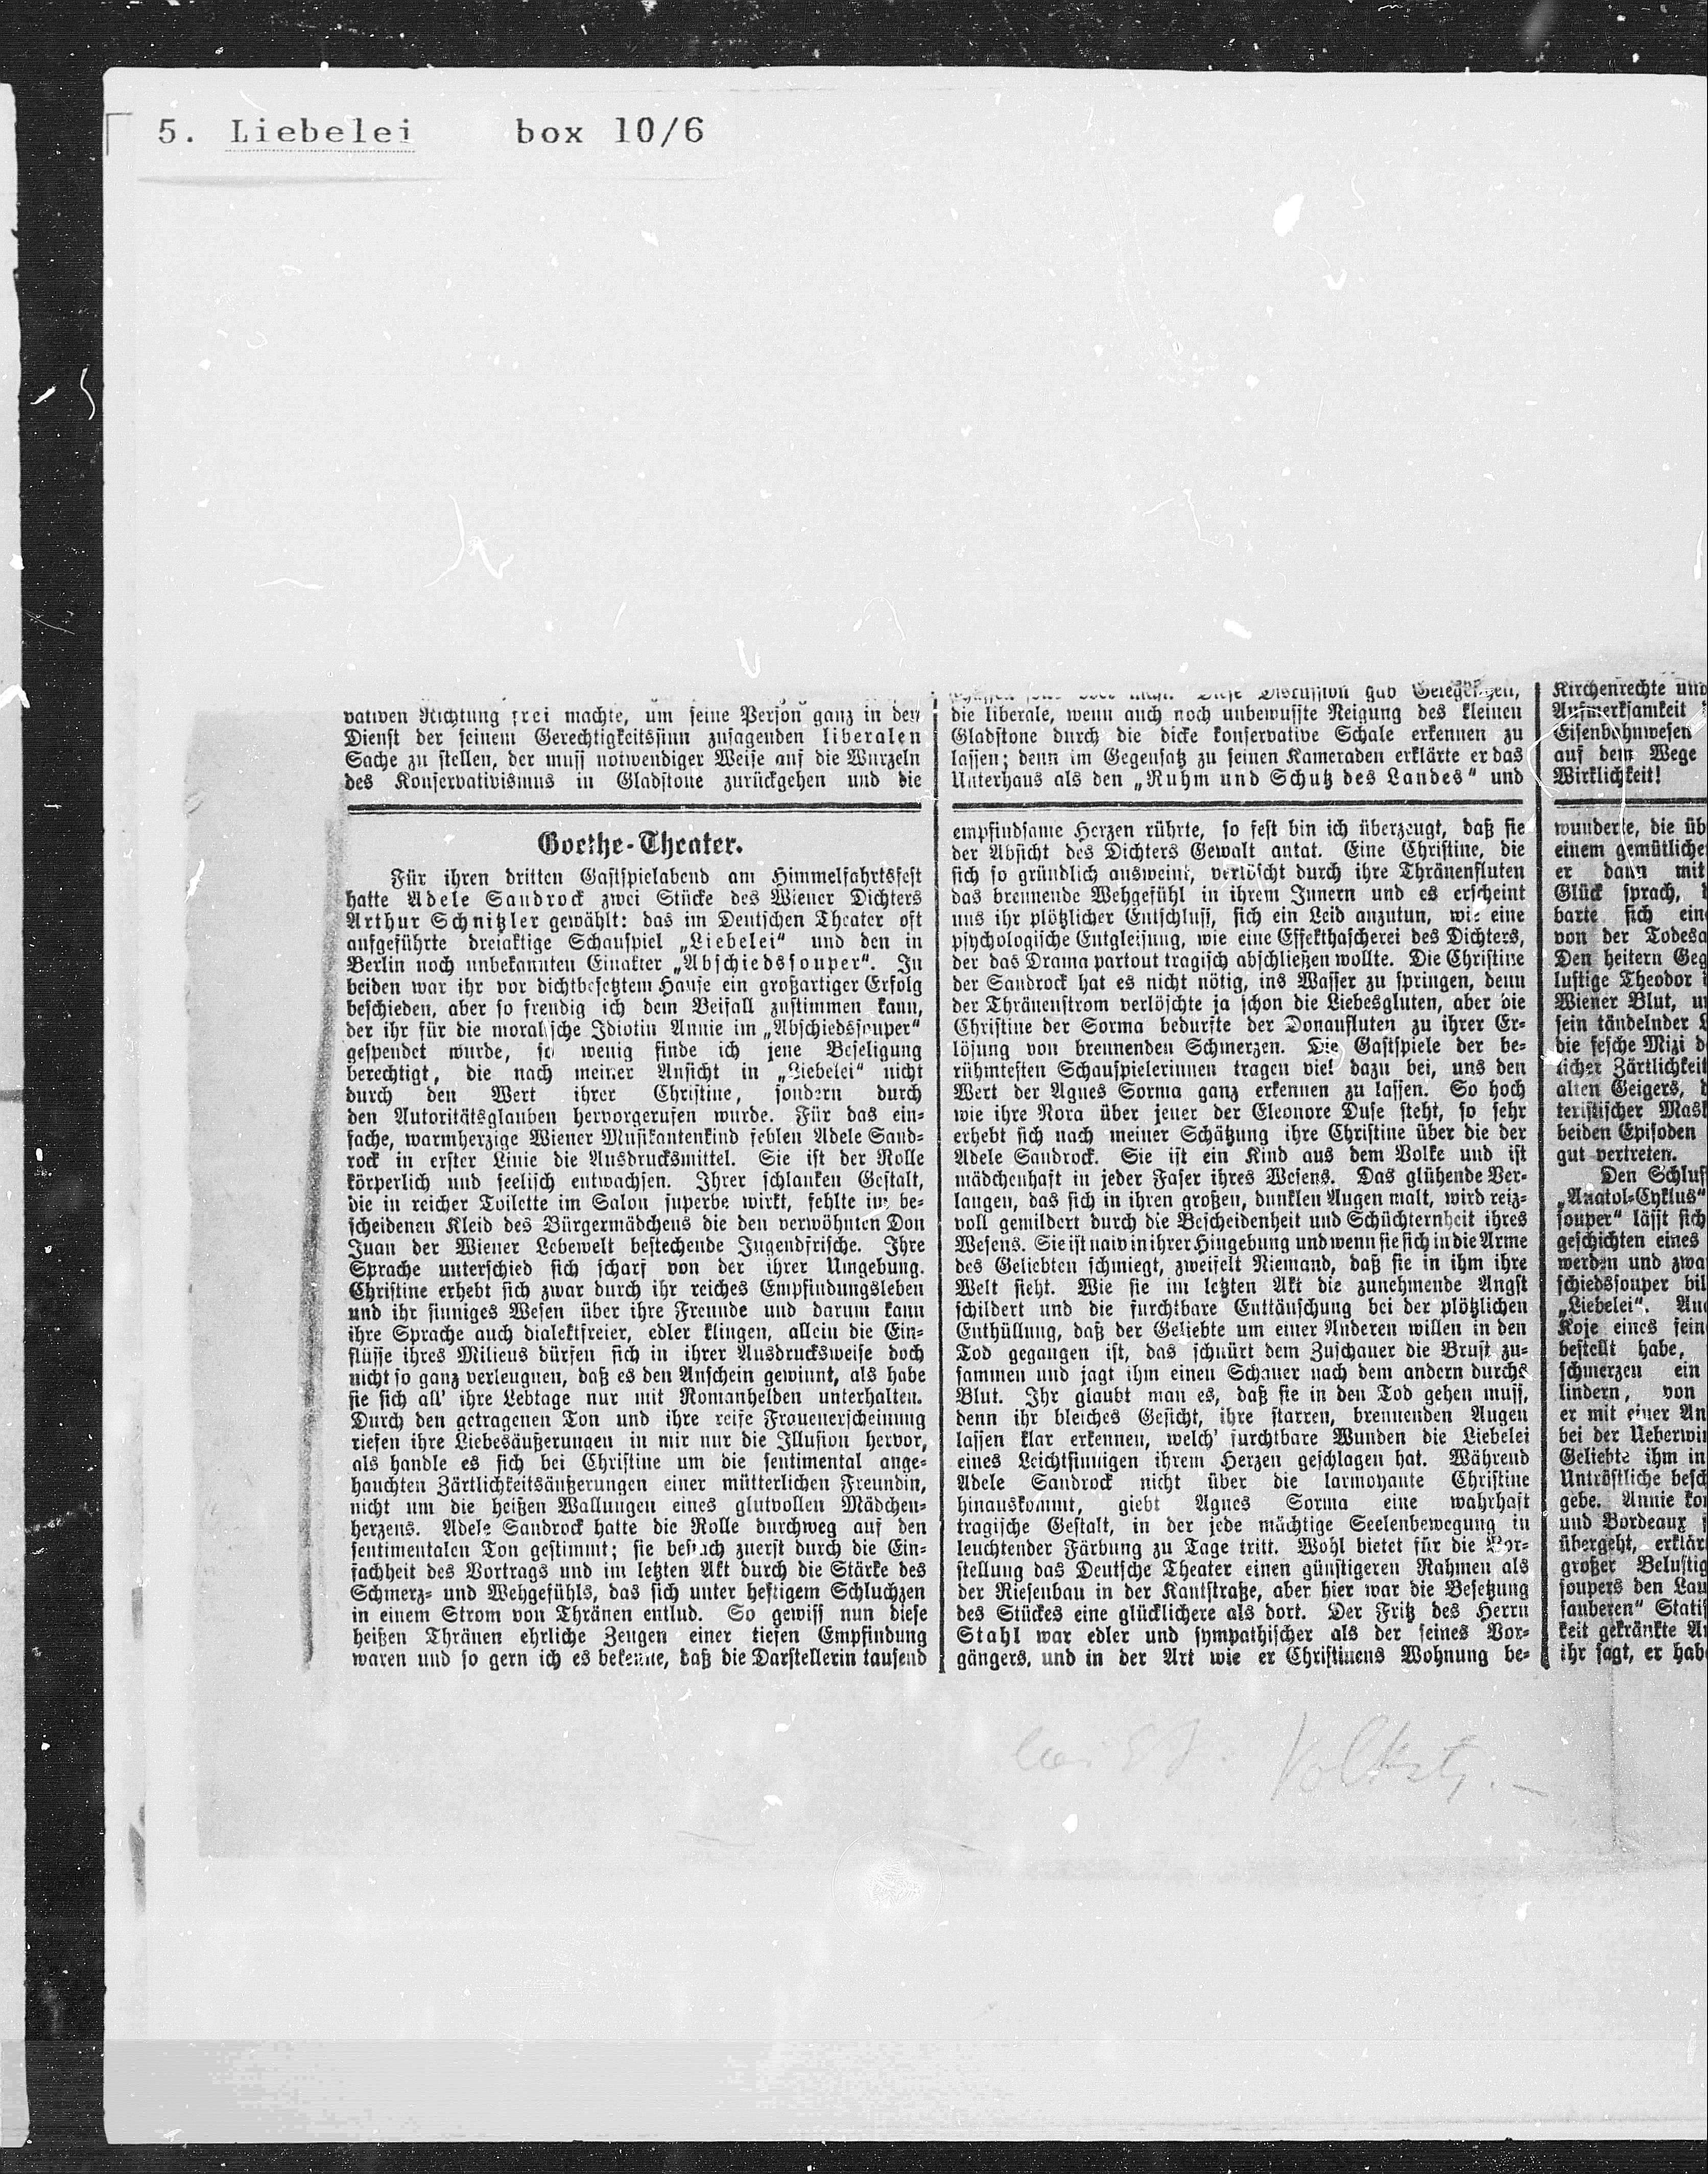 5. Liebelei box 10/6
vativen Richtung frei machte, um seine Person ganz in den
Dienst der seinem Gerechtigkeitssinn zusagenden liberalen
Sache zu stellen, der muss notwendiger Weise auf die Wurzeln
des Konservativismus in Gladstone zurückgehen und die
Diese Discussion gab Gelegenheit,
die liberale, wenn auch noch unbewusste Neigung des kleinen
Gladstone durch die dicke konservative Schale erkennen zu
lassen; denn im Gegensatz zu seinen Kameraden erklärte er das
Unterhaus als den „Ruhm und Schutz des Landes" und
Kirchenrechte und
Aufmerksamkeit
Eisenbahnwesen
auf dem Wege
Wirklichkeit!
Goethe-Theater.
Für ihren dritten Gastspielabend am Himmelfahrtsfest
hatte Adele Sandrock zwei Stücke des Wiener Dichters
Arthur Schnitzler gewählt: das im Deutschen Theater oft
aufgeführte dreiaktige Schauspiel „Liebelei" und den in
Berlin noch unbekannten Einakter „Abschiedssouper". In
beiden war ihr vor dichtbesetztem Hause ein großartiger Erfolg
beschieden, aber so freudig ich dem Beifall zustimmen kann,
der ihr für die moralische Idiotin Annie im „Abschiedssouper"
gespendet wurde, so wenig finde ich jene Beseligung
berechtigt, die nach meiner Ansicht in „Liebelei" nicht
durch den Wert ihrer Christine, sondern durch
den Autoritätsglauben hervorgerufen wurde. Für das ein-
fache, warmherzige Wiener Musikantenkind fehlen Adele Sand-
rock in erster Linie die Ausdrucksmittel. Sie ist der Rolle
körperlich und seelisch entwachsen. Ihrer schlanken Gestalt,
die in reicher Toilette im Salon superbe wirkt, fehlte im be-
scheidenen Kleid des Bürgermädchens die den verwöhnten Don
Juan der Wiener Lebewelt bestechende Jugendfrische. Ihre
Sprache unterschied sich scharf von der ihrer Umgebung.
Christine erhebt sich zwar durch ihr reiches Empfindungsleben
und ihr sinniges Wesen über ihre Freunde und darum kann
ihre Sprache auch dialektfreier, edler klingen, allein die Ein-
flüsse ihres Milieus dürfen sich in ihrer Ausdrucksweise doch
nicht so ganz verleugnen, daß es den Anschein gewinnt, als habe
sie sich all' ihre Lebtage nur mit Romanhelden unterhalten.
Durch den getragenen Ton und ihre reife Frauenerscheinung
riefen ihre Liebesäußerungen in mir nur die Illusion hervor,
als handle es sich bei Christine um die sentimental ange-
hauchten Zärtlichkeitsäußerungen einer mütterlichen Freundin,
nicht um die heißen Wallungen eines glutvollen Mädchen-
herzens. Adele Sandrock hatte die Rolle durchweg auf den
sentimentalen Ton gestimmt; sie bestach zuerst durch die Ein-
fachheit des Vortrags und im letzten Akt durch die Stärke des
Schmerz- und Wehgefühls, das sich unter heftigem Schluchzen
in einem Strom von Thränen entlud. So gewiss nun diese
heißen Thränen ehrliche Zeugen einer tiefen Empfindung
waren und so gern ich es bekenne, daß die Darstellerin tausend
empfindsame Herzen rührte, so fest bin ich überzeugt, daß sie
der Absicht des Dichters Gewalt antat. Eine Christine, die
sich so gründlich ausweint, verlöscht durch ihre Thränenfluten
das brennende Wehgefühl in ihrem Innern und es erscheint
uns ihr plötzlicher Entschluss, sich ein Leid anzutun, wie eine
psychologische Entgleisung, wie eine Effekthascherei des Dichters,
der das Drama partout tragisch abschließen wollte. Die Christine
der Sandrock hat es nicht nötig, ins Wasser zu springen, denn
der Thränenstrom verlöschte ja schon die Liebesgluten, aber die
Christine der Sorma bedurfte der Donaufluten zu ihrer Er-
lösung von brennenden Schmerzen. Die Gastspiele der be-
rühmtesten Schauspielerinnen tragen viel dazu bei, uns den
Wert der Agnes Sorma ganz erkennen zu lassen. So hoch
wie ihre Nora über jener der Eleonore Duse steht, so sehr
erhebt sich nach meiner Schätzung ihre Christine über die der
Adele Sandrock. Sie ist ein Kind aus dem Volke und ist
mädchenhaft in jeder Faser ihres Wesens. Das glühende Ver-
langen, das sich in ihren großen, dunklen Augen malt, wird reiz-
voll gemildert durch die Bescheidenheit und Schüchternheit ihres
Wesens. Sie ist naiv in ihrer Hingebung und wenn sie sich in die Arme
des Geliebten schmiegt, zweifelt Niemand, daß sie in ihm ihre
Welt sieht. Wie sie im letzten Akt die zunehmende Angst
schildert und die furchtbare Enttäuschung bei der plötzlichen
Enthüllung, daß der Geliebte um einer Anderen willen in den
Tod gegangen ist, das schnürt dem Zuschauer die Brust zu-
sammen und jagt ihm einen Schauer nach dem andern durchs
Blut. Ihr glaubt man es, daß sie in den Tod gehen muss,
denn ihr bleiches Gesicht, ihre starren, brennenden Augen
lassen klar erkennen, welch' furchtbare Wunden die Liebelei
eines Leichtsinnigen ihrem Herzen geschlagen hat. Während
Adele Sandrock nicht über die larmoyante Christine
hinauskommt, giebt Agnes Sorma eine wahrhaft
tragische Gestalt, in der jede mächtige Seelenbewegung in
leuchtender Färbung zu Tage tritt. Wohl bietet für die Vor-
stellung das Deutsche Theater einen günstigeren Rahmen als
der Riesenbau in der Kantstraße, aber hier war die Besetzung
des Stückes eine glücklichere als dort. Der Fritz des Herrn
Stahl war edler und sympathischer als der seines Vor-
gängers, und in der Art wie er Christinens Wohnung be-
wunderte, die üb
einem gemütliche
er dann mit
Glück sprach,
barte sich ein
von der Todesa
Den heitern Geg
lustige Theodor
Wiener Blut, u
sein tändelnder
die fesche Mizi d
licher Zärtlichkeit
alten Geigers,
teristischer Mask
beiden Episoden
gut vertreten.
Den Schluß
„Anatol-Cyklus"
souper" lässt sich
geschichten eines
werden und zwa
schiedssouper bil
„Liebelei". An
Koje eines fein
bestellt habe,
schmerzen ein
lindern, von
er mit einer An
bei der Ueberwi
Geliebte ihm in
Untröstliche besch
gebe. Annie ko
und Bordeaux
übergeht, erklär
großer Belustig
soupers den Lau
sauberen" Stati
keit gekränkte A
ihr sagt, er hab